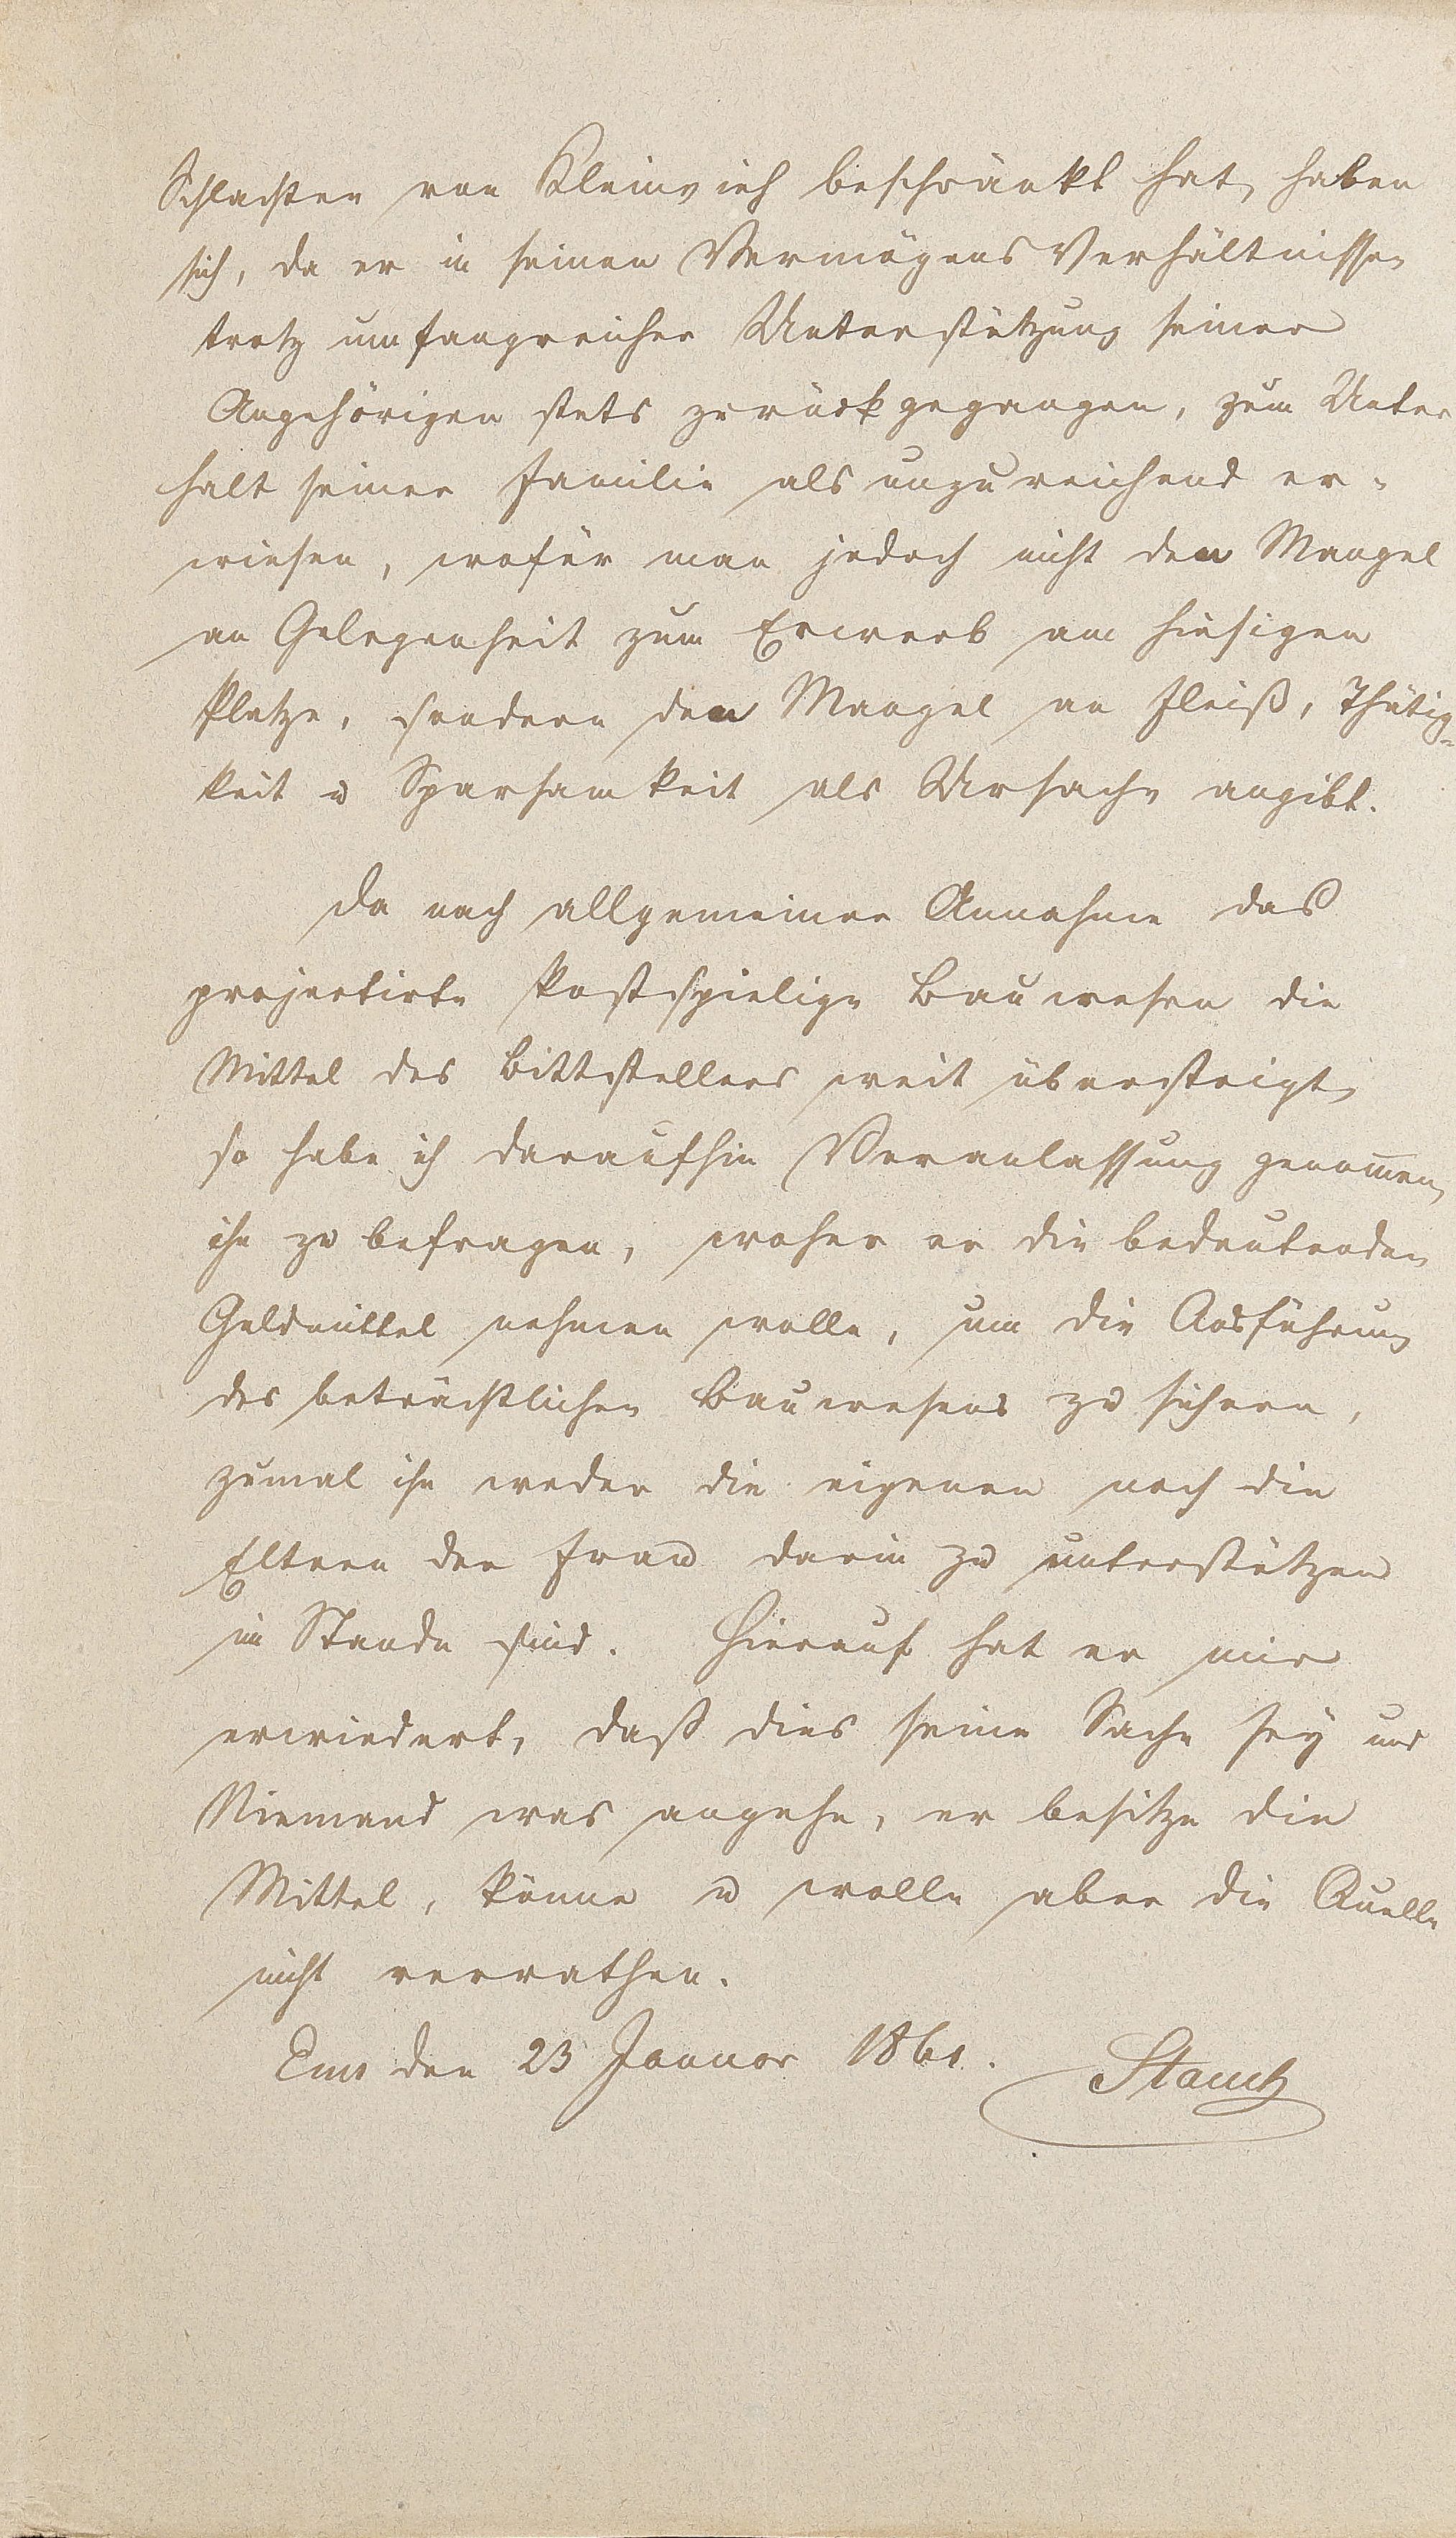 Schlachten von Kleinvieh beschränkt hat, haben
sich, da er in seinen Vermögens Verhältnissen
trotz umfangreicher Unterstützung seiner
Angehörigen stets zurückgegangen, zum Unter
halt seiner Familie als unzureichend er-
wiesen, wofür man jedoch nicht den Mangel
an Gelegenheit zum Erwerb am hiesigen
Platze, sondern den Mangel an Fleiß, Thätig-
keit u Sparsamkeit als Ursache angibt.
Da nach allgemeiner Annahme das
projectirte kostspielige Bauwesen die
Mittel des Bittstellers weit übersteigt,
so habe ich daraufhin Veranlassung genom̅en,
ihn zu befragen, woher er die bedeutenden
Geldmittel nehmen wolle, um die Ausführung
des beträchtlichen Bauwesens zu sichern,
zumal ihn weder die eigenen noch die
Eltern der Frau darin zu unterstützen
im Stande sind. Hierauf hat er mir
erwiedert, daß dies seine Sache sey und
Niemand was angehe, er besitze die
Mittel, könne u wolle aber die Quelle
nicht verrathen.
Ems den 23 Januar 1861.